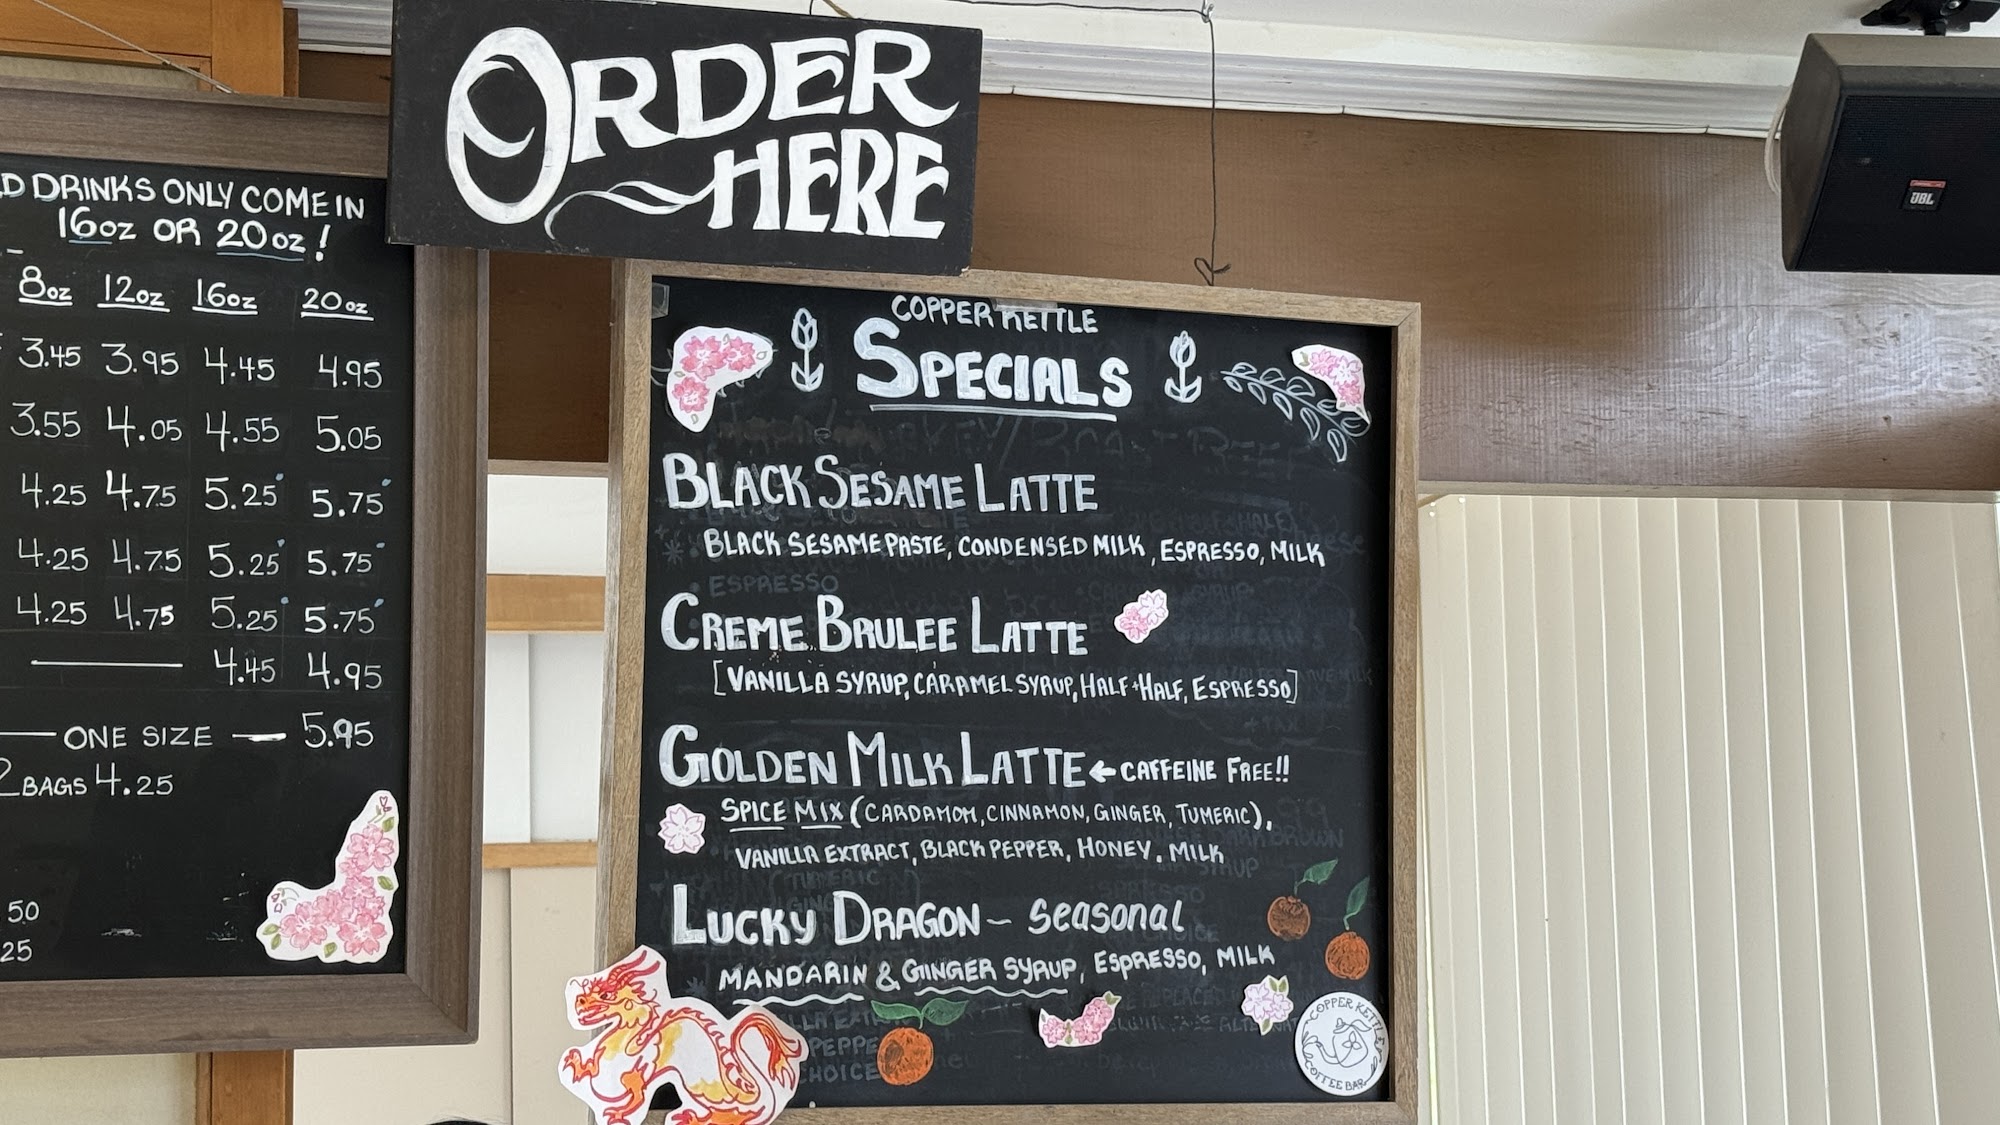 ORDER
HERE
D DRINKS ONLY COME IN
16oz OR 20oz!
8oz 12oz 16oz 20oz
3.45 3.95 4.45 4.95
3.55 4.05 4.55 5.05
4.25 4.75 5.25 5.75
4.25 4.75 5.25 5.75
4.25 4.75 5.25 5.75
4.45 4.95
ONE SIZE 5.95
2 BAGS 4.25
50
25
COPPER KETTLE
SPECIALS
BLACK SESAME LATTE
BLACK SESAME PASTE, CONDENSED MILK, ESPRESSO, MILK
CREME BRULEE LATTE
[VANILLA SYRUP, CARAMEL SYRUP, HALF+HALF, ESPRESSO]
GOLDEN MILK LATTE ← CAFFEINE FREE!!
SPICE MIX (CARDAMOM, CINNAMON, GINGER, TUMERIC),
VANILLA EXTRACT, BLACK PEPPER, HONEY, MILK
LUCKY DRAGON - seasonal
MANDARIN & GINGER SYRUP, ESPRESSO, MILK
COPPER KETTLE
COFFEE BAR
JBL